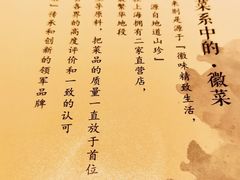 菜系中的·徽菜
来制是源于『徽味精致生活，
源自地道山珍』
上海拥有二家直营店，
繁华地段
等原料，把菜品的质量一直放于首位
各界的高度评价和一致的认可
』传承和创新的领军品牌